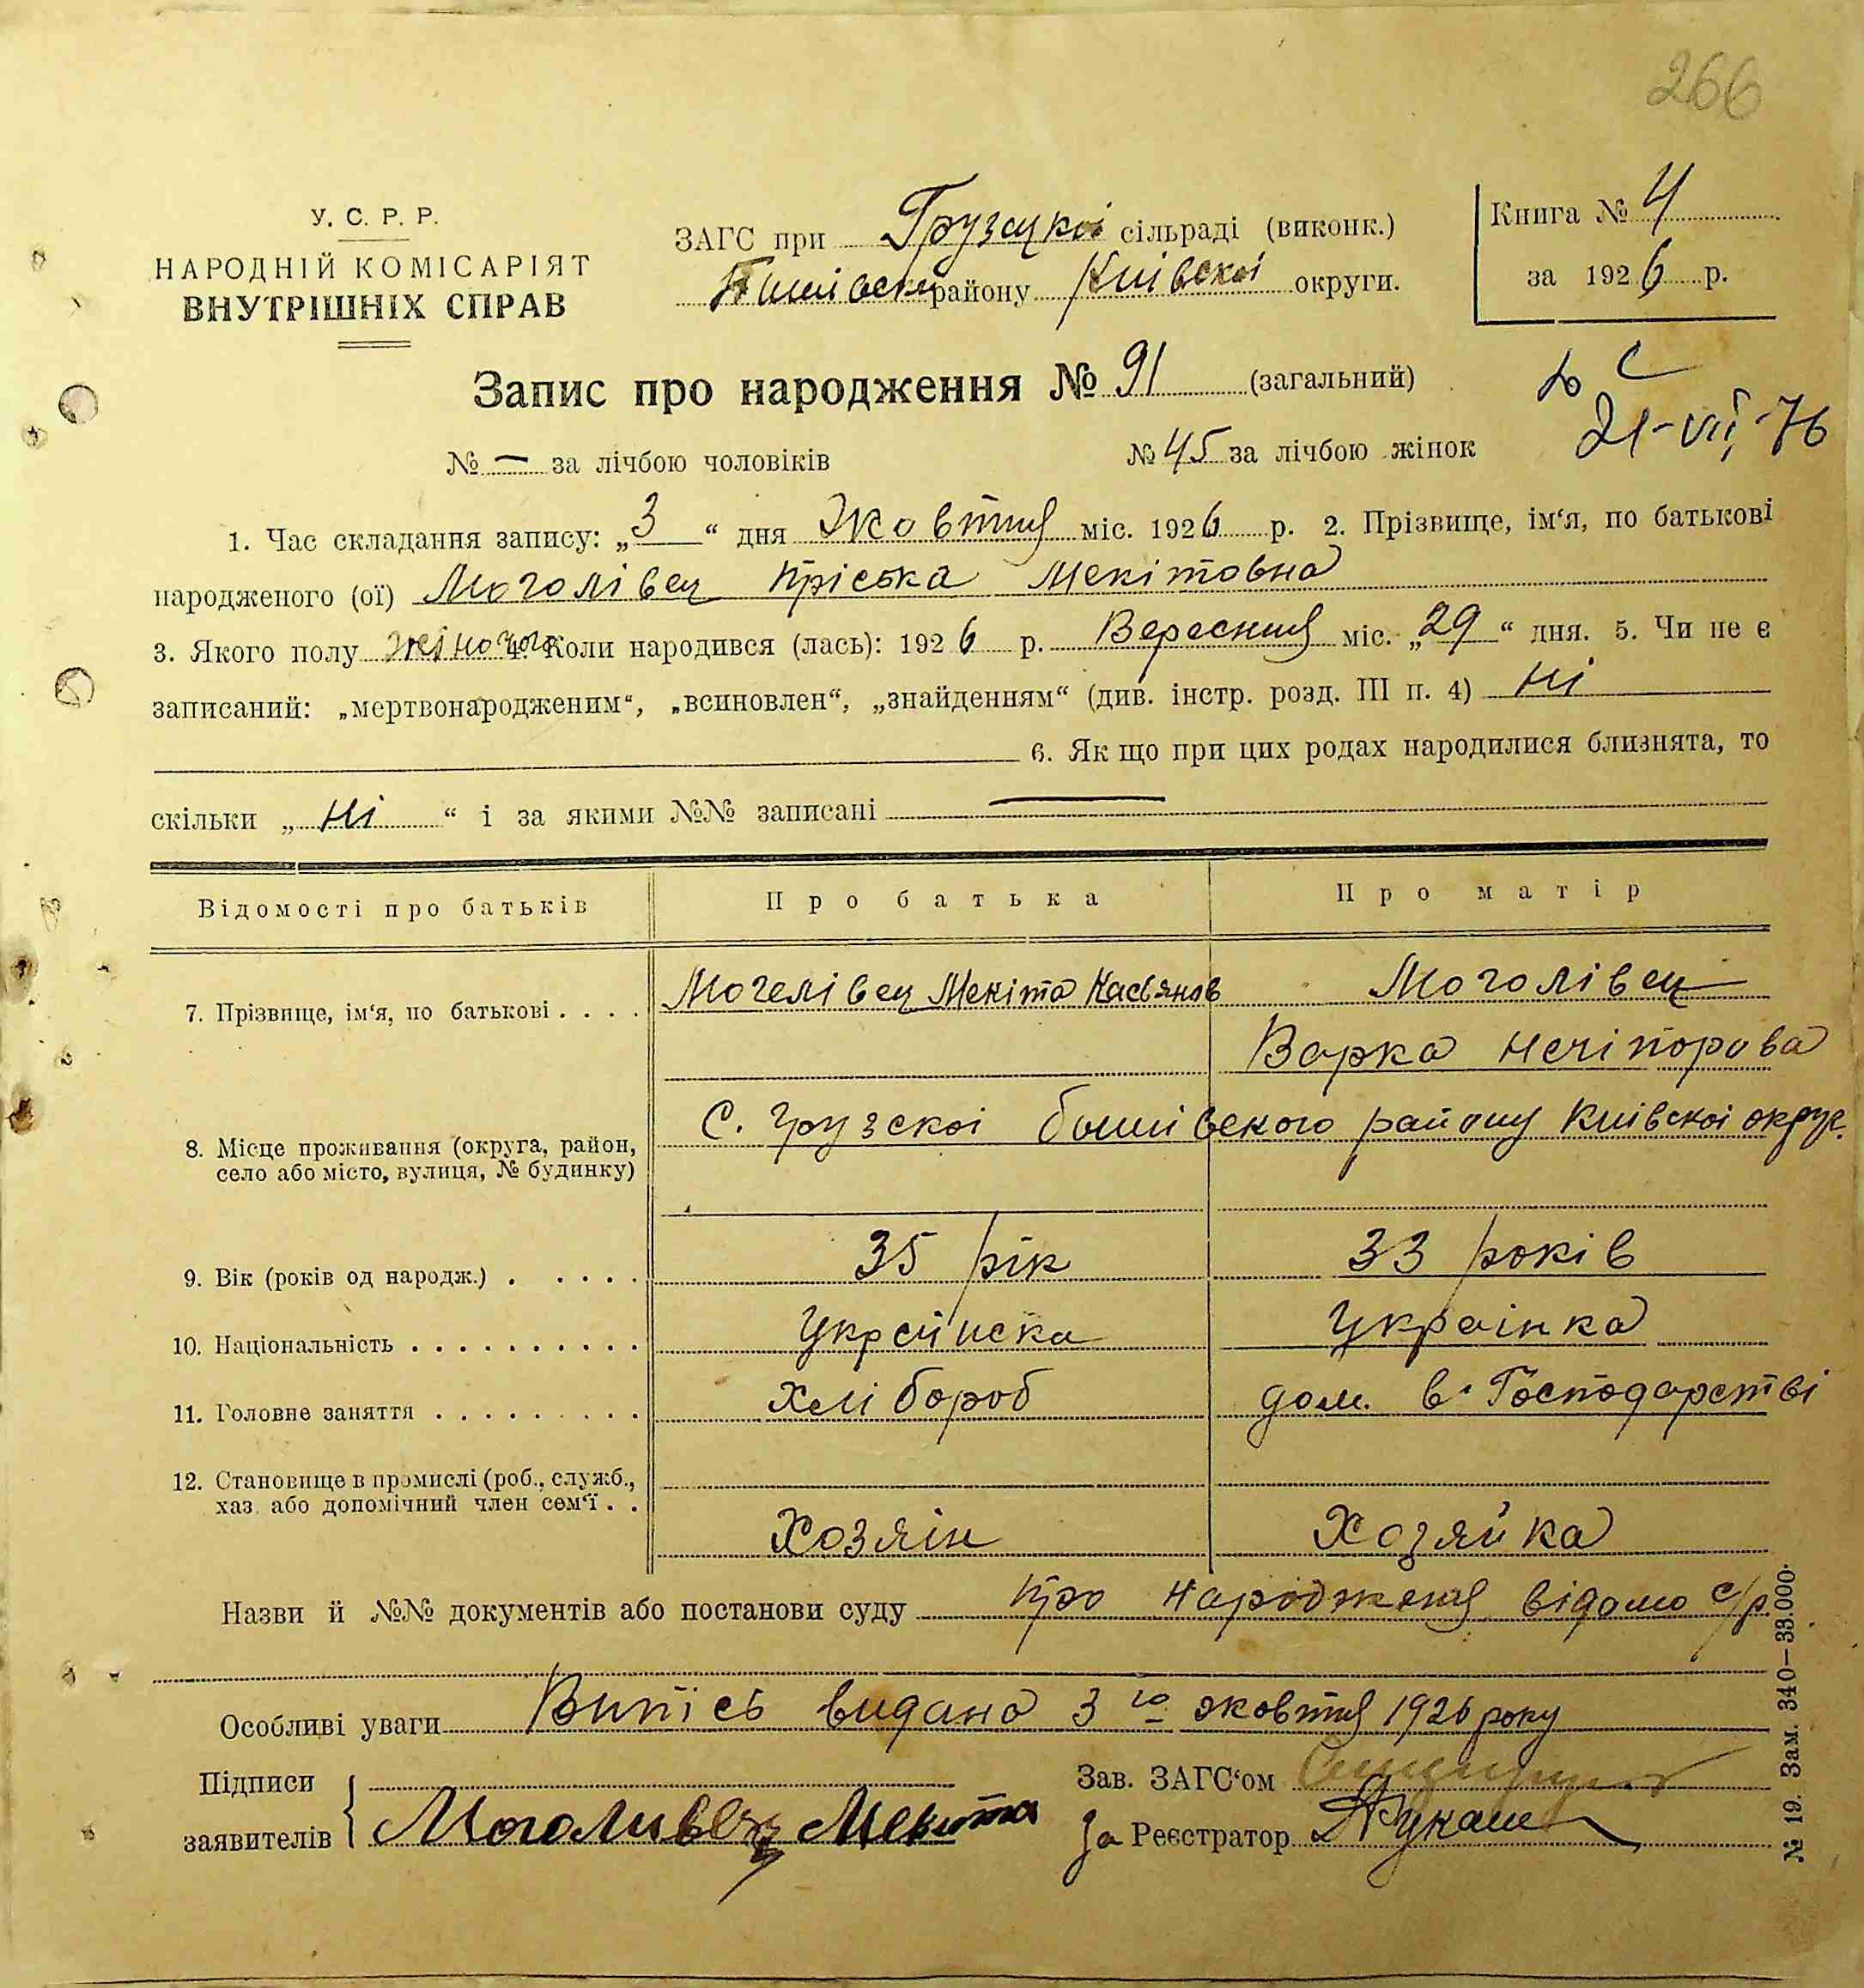 266
У. С. Р. Р.
НАРОДНІЙ КОМІСАРІЯТ
ВНУТРІШНІХ СПРАВ
ЗАГС при Грузскої сільраді (виконк.)
району Київскої округи.
Книга № 4
за 1926 р.
Запис про народження № 91 (загальний)
21-VII-76
№ — за лічбою чоловіків № 45 за лічбою жінок
1. Час складання запису: „3“ дня Жовтня міс. 1926 р. 2. Прізвище, ім‘я, по батькові
народженого (ої) Моголівец Пріська Мекітовна
3. Якого полу жіночого 4. Коли народився (лась): 1926 р. Вересния міс. „29“ дня. 5. Чи не є
записаний: „мертвонародженим“, „всиновлен“, „знайденням“ (див. інстр. розд. III п. 4) Ні
6. Як що при цих родах народилися близнята, то
скільки „Ні“ і за якими №№ записані —
Відомості про батьків Про батька Про матір
7. Прізвище, ім‘я, по батькові . . . . Могелівец Мекіта Касьянов Моголівец
Варка Нечіпорова
8. Місце проживання (округа, район,
село або місто, вулиця, № будинку)
С. Грузскої бишівского району Київскої округ.
9. Вік (років од народж.) . . . . . 35 рік 33 років
10. Національність . . . . . . . . . . Україінка
11. Головне заняття . . . . . . . . . Хлібороб дом. в. Господарстві
12. Становище в промислі (роб., служб.,
хаз. або допомічний член сем‘ї . .
Хозяін Хозяйка
Назви й №№ документів або постанови суду про народженя відомо с/р.
Особливі уваги Випісь видана 3го жовтня 1926 року
Підписи
заявителів Моголивец Мекита
Зав. ЗАГС‘ом
За Реєстратор Лукаш
№ 19. Зам. 340—33.000.